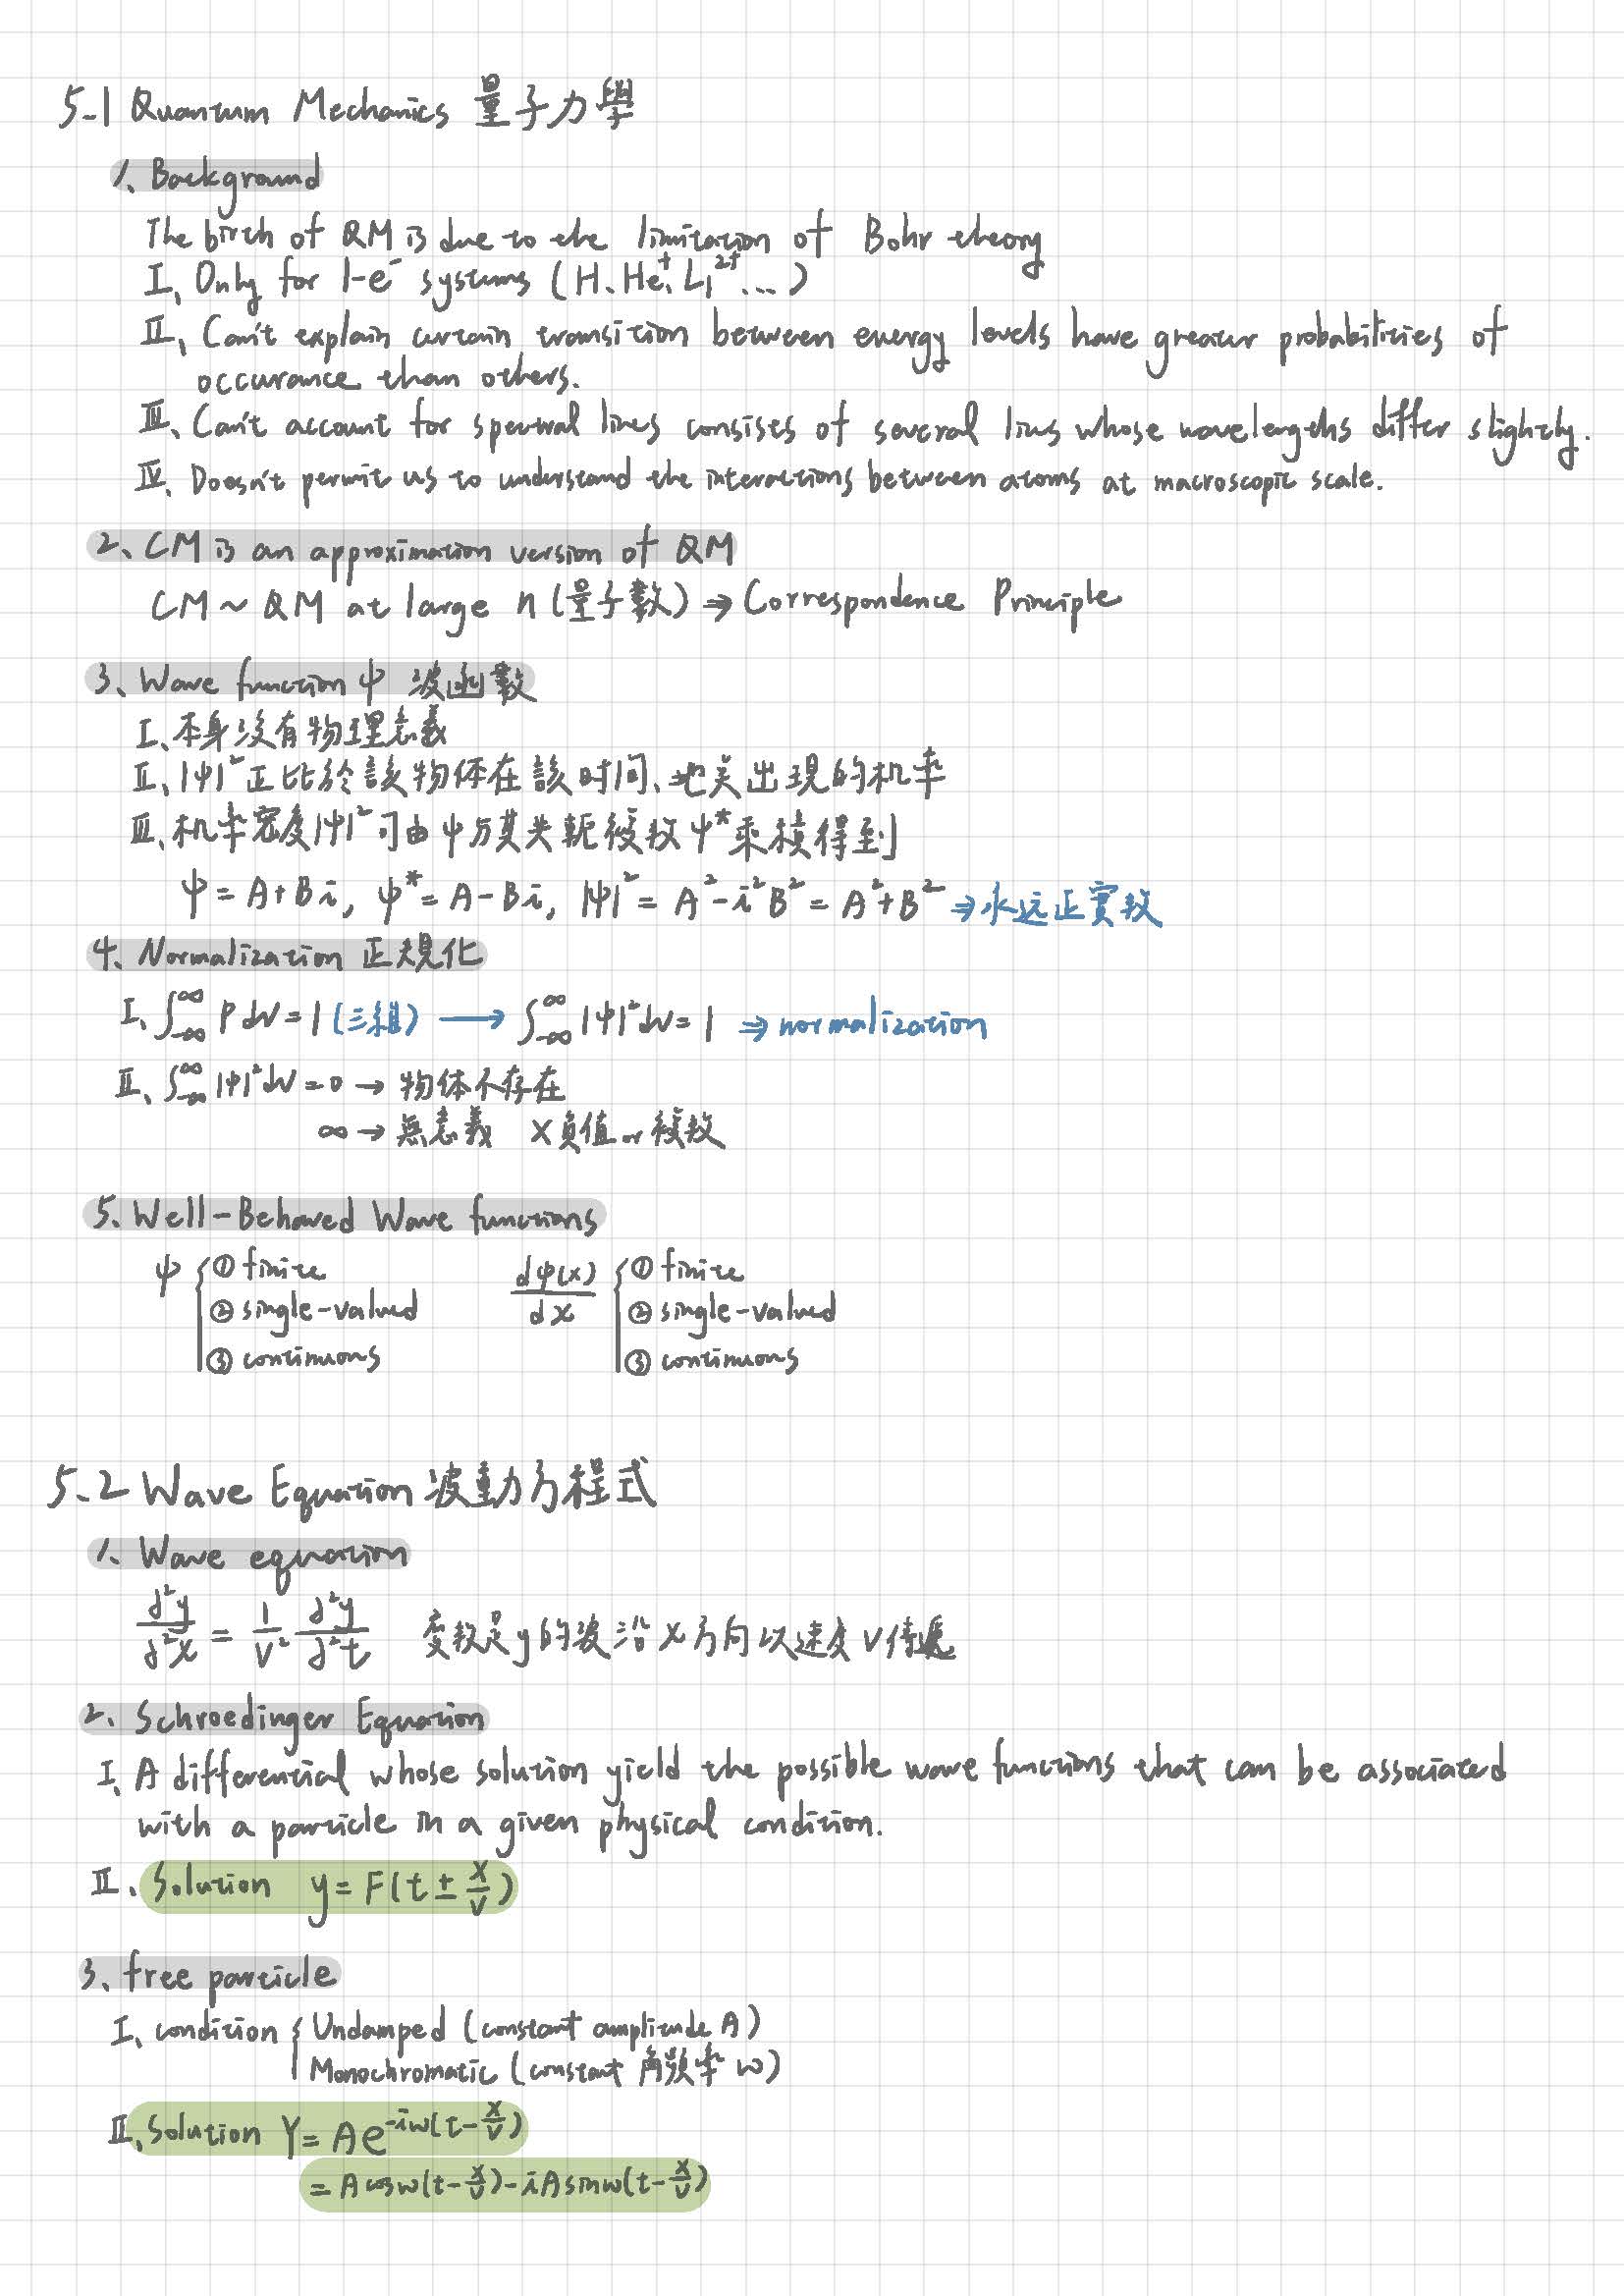 5-1 Quantum Mechanics 量子力學
1、Background
The birth of QM is due to the limitation of Bohr theory
I、Only for 1-e⁻ systems (H、He⁺、Li²⁺...)
II、Can't explain certain transition between energy levels have greater probabilities of
occurance than others.
III、Can't account for spectral lines consists of several lines whose wavelengths differ slightly.
IV、Doesn't permit us to understand the interactions between atoms at macroscopic scale.
2、CM is an approximation version of QM
CM ~ QM at large n (量子數) ⇒ Correspondence Principle
3、Wave function ψ 波函數
I、本身沒有物理意義
II、|ψ|² 正比於該物体在該时间、地点出現的机率
III、机率密度|ψ|² 可由 ψ 与其共軛複数 ψ* 乘積得到
ψ = A + Bi, ψ* = A - Bi, |ψ|² = A² - i²B² = A² + B² ⇒ 永远正實数
4、Normalization 正規化
I、∫_{-∞}^{∞} P dV = 1 (三維) → ∫_{-∞}^{∞} |ψ|² dV = 1 ⇒ normalization
II、∫_{-∞}^{∞} |ψ|² dV = 0 → 物体不存在
∞ → 無意義 X 負值 or 複数
5、Well-Behaved Wave functions
ψ { ① finite dψ(x)/dx { ① finite
② single-valued ② single-valued
③ continuous ③ continuous
5-2 Wave Equation 波動方程式
1、Wave equation
∂²y/∂²x = 1/v² ∂²y/∂²t 变数是 y 的波沿 x 方向以速度 v 傳遞
2、Schroedinger Equation
I、A differential whose solution yield the possible wave functions that can be associated
with a particle in a given physical condition.
II、Solution y = F(t ± x/v)
3、free particle
I、condition { Undamped (constant amplitude A)
Monochromatic (constant 角頻率 ω)
II、Solution Y = Ae^{-iω(t - x/v)}
= A cos ω(t - x/v) - iA sin ω(t - x/v)